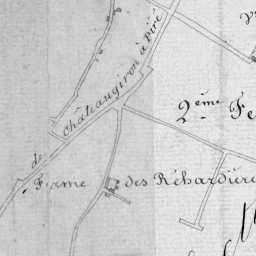 de Châteaugiron à Piré
2.ème Fe
Ferme des Réhardière